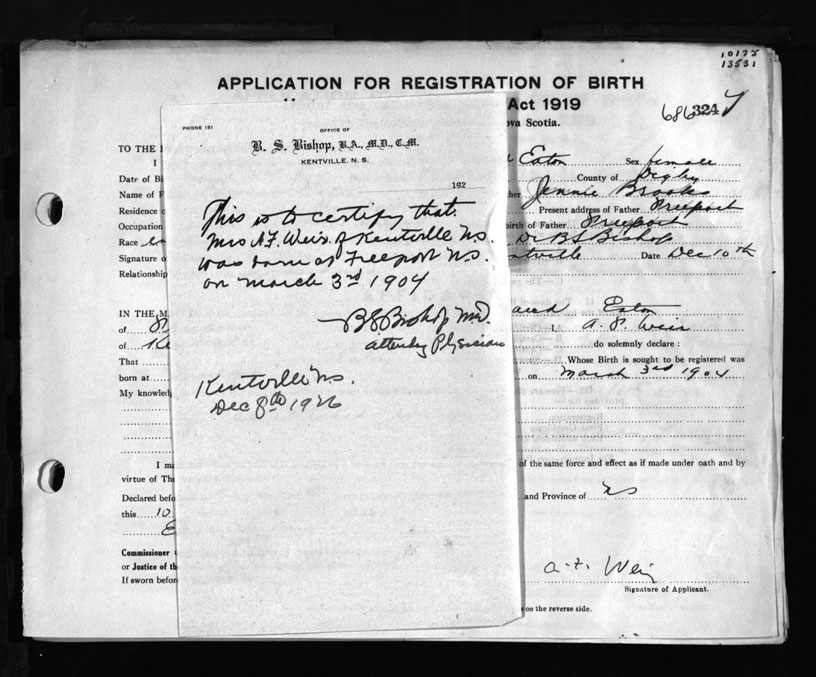 10175
13531
APPLICATION FOR REGISTRATION OF BIRTH
Act 1919
686324
ova Scotia.
PHONE 151
OFFICE OF
B. S. Bishop, B.A., M.D., C.M.
KENTVILLE, N. S.
192
This is to certify that
Mrs A.F. Weir of Kentville N.S.
was born at Freeport N.S.
on March 3rd 1904
BS Bishop M.D.
attending Physician
Kentville N.S.
Dec 8th 1926
TO THE
I
Eaton Sex female
Date of Bi
County of Digby
Name of F
ther Jennie Brooks
Residence o
Present address of Father Freeport
Occupation
birth of Father Freeport
Race
Dr BS Bishop
Signature o
Date Dec 10th
Relationship
IN THE M
Eaton
of
I, A. F. Weir
of
do solemnly declare :
That
Whose Birth is sought to be registered was
born at
on March 3rd 1904
My knowled
I ma
of the same force and effect as if made under oath and by
virtue of The
Declared befo
and Province of NS
this 10
E
Commissioner
or Justice of th
A. F. Weir
If sworn before
Signature of Applicant.
on the reverse side.